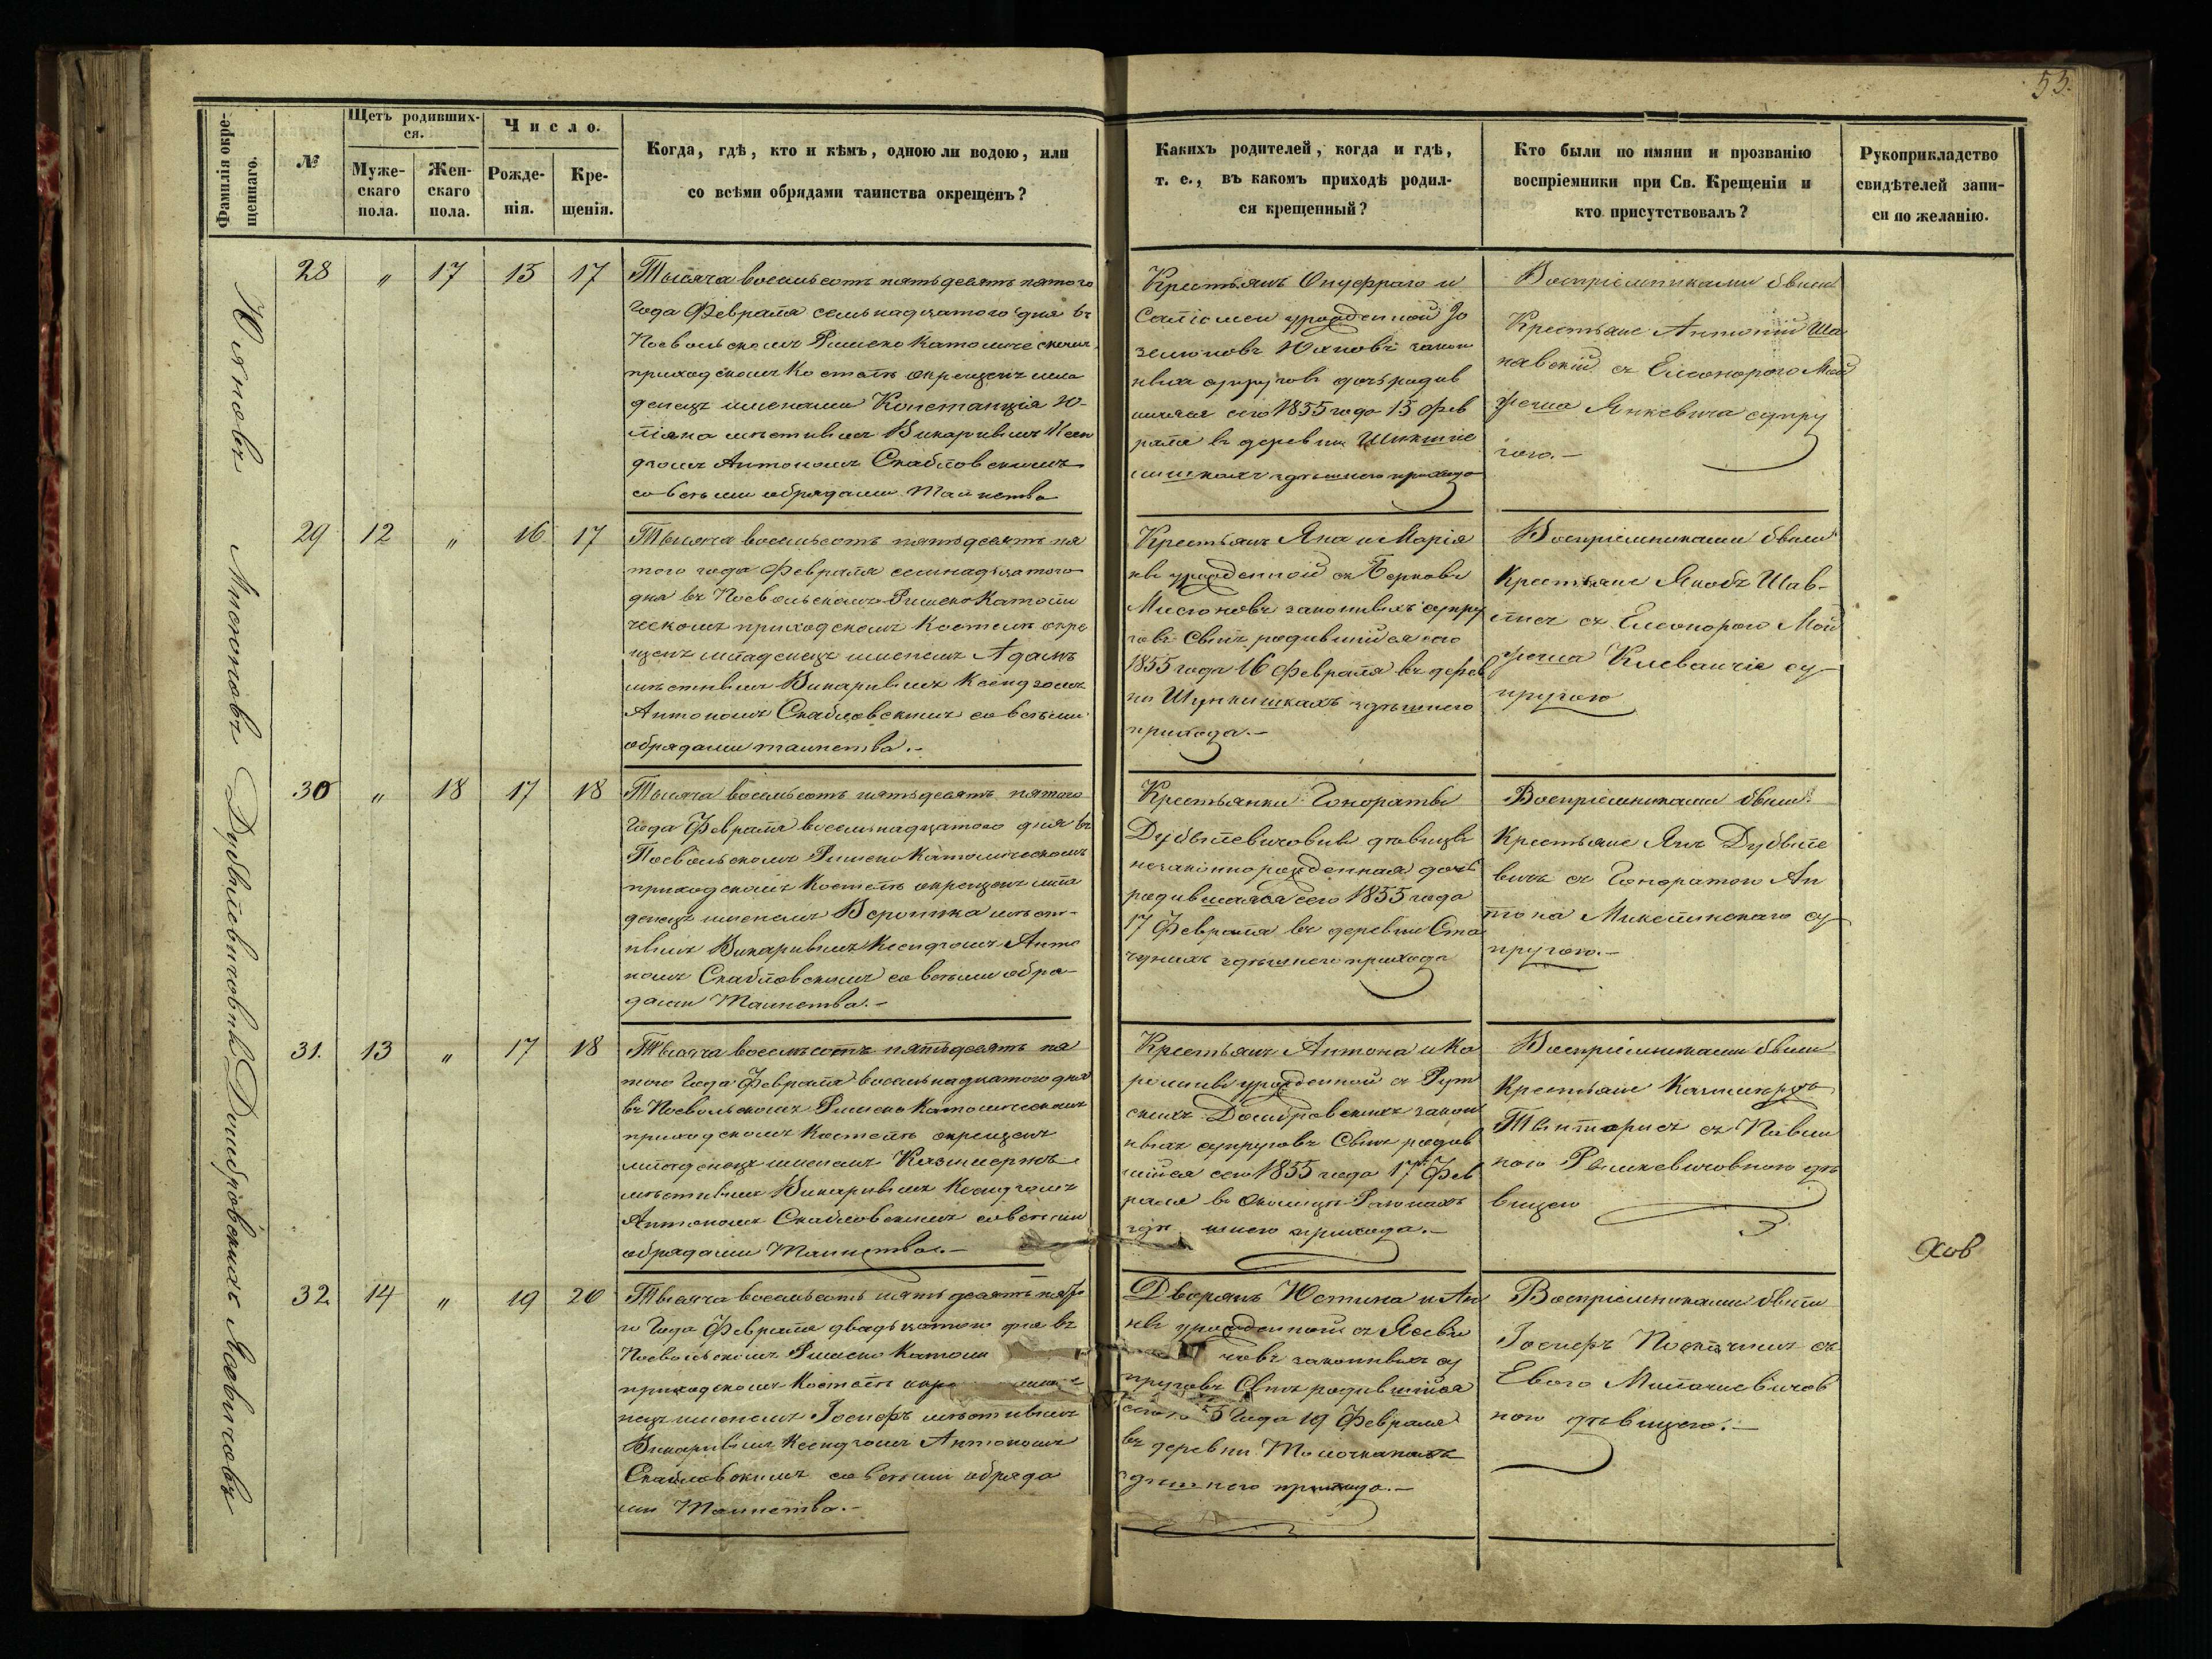 53.
Фамилія окре-
щеннаго.
№
Щетъ родивших-
ся.
Муже-
скаго
пола.
Жен-
скаго
пола.
Число.
Рожде-
нія.
Кре-
щенія.
Когда, гдѣ, кто и кѣмъ, одною ли водою, или
со всѣми обрядами таинства окрещенъ?
Какихъ родителей, когда и гдѣ,
т. е., въ какомъ приходѣ родил-
ся крещенный?
Кто были по имяни и прозванію
воспріемники при Св. Крещеніи и
кто присутствовалъ?
Рукоприкладство
свидѣтелей запи-
си по желанію.
Юяновъ
28 " 17 15 17
Тысяча восемьсотъ пятьдесятъ пятого
года Февраля семьнадцатого дня въ
Посвольскомъ Римско Католическомъ
приходскомъ Костелѣ окрещенъ мла
денецъ именами Констанція Ю-
ліяна мѣстнымъ Викарнымъ Ксен
дзомъ Антономъ Скабловскимъ
со всѣми обрядами Таинства
Крестьянъ Онуфраго и
урожденной
Юяновъ закон
ныхъ супруговъ дочь родив
шаяся сего 1855 года 15 Фев
раля въ деревни
здѣшнего прихода
Воспріемниками были
Крестьяне Антоній Ша
навскій съ Елеонорою Мой
жеша Янкевича супру
гою.-
29 12 " 16 17
Тысяча восемьсотъ пятьдесятъ пя
того года Февраля семнадцатого
дня въ Посвольскомъ Римско Католи
ческомъ приходскомъ Костелѣ окре
щенъ младенецъ именемъ Адамъ
мѣстнымъ Викарнымъ Ксендзомъ
Антономъ Скабловскимъ со всѣми
обрядами таинства.-
Крестьянъ Яна и Марія
ны урожденной съ
законныхъ супру
говъ Сынъ родившійся сего
1855 года 16 Февраля въ дерев
ни Шункишкахъ здѣшнего
прихода.-
Воспріемниками были
Крестьяне Якобъ Шав-
съ Елеонорою Мой
жеша су-
пругою
Дубылевичовны
30 " 18 17 18
Тысяча восемьсотъ пятьдесятъ пятого
Года Февраля восемьнадцатого дня въ
Посвольскомъ Римско Католическомъ
приходскомъ Костелѣ окрещенъ мла
денецъ именемъ Вероника мѣст-
нымъ Викарнымъ Ксендзомъ Анто
номъ Скабловскимъ со всѣми обря-
дами Таинства.-
Крестьянки Гонораты
Дубылевичовны дѣвицы
незаконнорожденная дочь
родившаяся сего 1855 года
17 Февраля въ деревни Ста
чунахъ здѣшнего прихода
Воспріемниками были
Крестьяне Янъ Дубыле
вичъ съ Гоноратою Ан
тона су-
пругою.-
Домбровскихъ
31. 13 " 17 18
Тысяча восемьсотъ пятьдесятъ пя
того Года Февраля восемьнадцатого дня
въ Посвольскомъ Римско Католическомъ
приходскомъ Костелѣ окрещенъ
младенецъ именемъ Казимержъ
мѣстнымъ Викарнымъ Ксендзомъ
Антономъ Скабловскимъ со всѣми
обрядами Таинства.-
Крестьянъ Антона и Ка
ролины урожденной съ Рут
скихъ Домбровскихъ закон
ныхъ супруговъ Сынъ родив
шійся сего 1855 года 17 Фев
раля въ околицѣ
здѣшнего прихода.-
Воспріемниками были
Крестьяне Казимержъ
съ
дѣ
вицею
Хив
Ясевичовъ
32 14 " 19 20
Тысяча восемьсотъ пятьдесятъ пято
го Года Февраля двадцатого дня въ
Посвольскомъ Римско Католи
приходскомъ Костелѣ окре
нецъ именемъ Іосифъ мѣстнымъ
Викарнымъ Ксендзомъ Антономъ
Скабловскимъ со всѣми обряда
ми Таинства.-
Дворянъ Юстина и Ан
ны урожденной съ
човъ законныхъ су
пруговъ Сынъ родившійся
5 Года 19 Февраля
въ деревни
здѣшнего прихода.-
Воспріемниками были
Іосифъ съ
Евою
ною дѣвицею.-